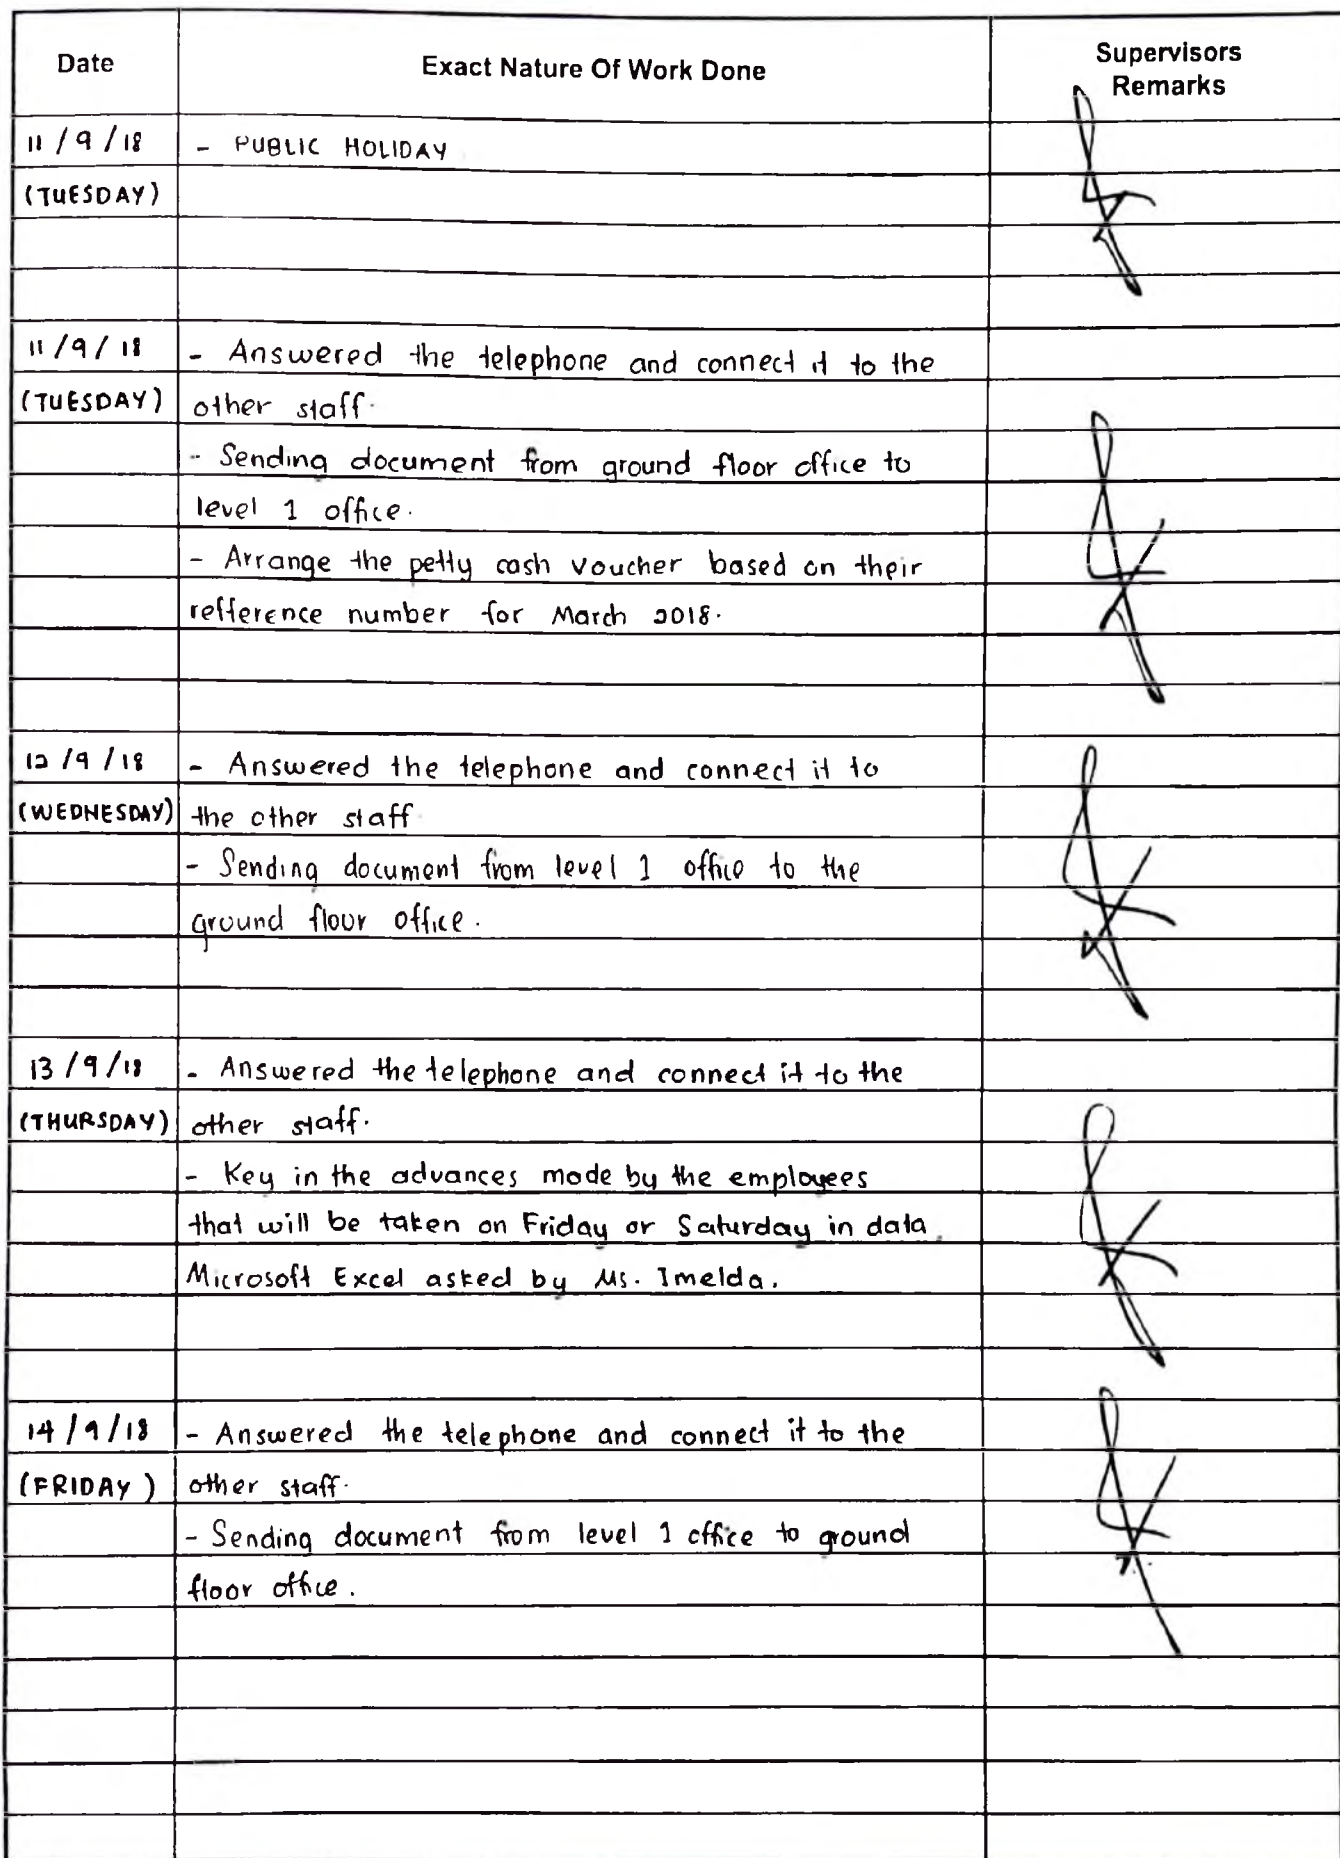 Date Exact Nature Of Work Done Supervisors
Remarks
11/9/18 - PUBLIC HOLIDAY
(TUESDAY)
11/9/18 - Answered the telephone and connect it to the
(TUESDAY) other staff.
- Sending document from ground floor office to
level 1 office.
- Arrange the petty cash voucher based on their
refference number for March 2018.
12/9/18 - Answered the telephone and connect it to
(WEDNESDAY) the other staff
- Sending document from level 1 office to the
ground floor office.
13/9/18 - Answered the telephone and connect it to the
(THURSDAY) other staff.
- Key in the advances made by the employees
that will be taken on Friday or Saturday in data
Microsoft Excel asked by Ms. Imelda.
14/9/18 - Answered the telephone and connect it to the
(FRIDAY) other staff.
- Sending document from level 1 office to ground
floor office.